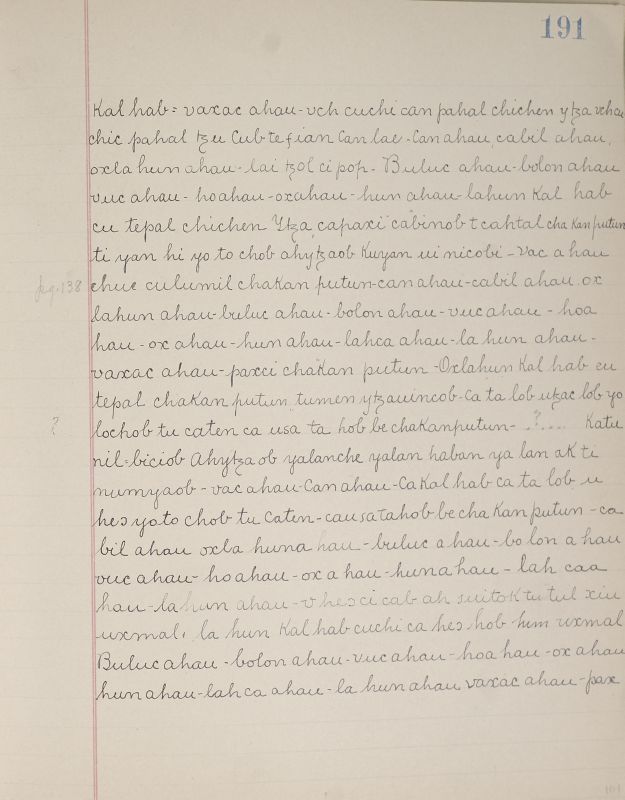 191
Kal hab = vaxac ahau - vch cuchi can pahal chichen ytza vchau
chic pahal tzu Cub-te fian Can lae - Can ahau, cabil ahau,
oxla hun ahau - lai tzol ci pop - Buluc ahau - bolon ahau
vuc ahau - hoahau - oxahau - hun ahau - lahun Kal hab
cu tepal chichen Ytza capaxi cabinob t cahtal cha Kan putun
ti yan hi yo to chob ahytzaob Kuyan ui nicobi - Vac a hau
chuc culumil chaKan putun - can ahau - cabil ahau. ox
lahun ahau - buluc ahau - bolon ahau - vuc ahau - hoa
hau - ox ahau - hun ahau - lahca ahau - la hun ahau -
vaxac ahau - paxci chaKan putun - Oxlahun Kal hab cu
tepal chaKan putun tumen ytzauincob - Ca ta lob utzac lob yo
lochob tu caten ca usa ta hob be chaKanputun - ..?.... Katu
nil - biciob Ahytza ob yalanche yalan haban ya lan aK ti
numyaob - vac ahau - Can ahau - Ca Kal hab ca ta lob u
hes yo to chob tu Caten - causatahob be cha Kan putun - ca
bil ahau oxla huna hau - buluc a hau - bo lon a hau
vuc ahau - ho ahau - ox a hau - huna hau - lah caa
hau - la hun ahau - v hes ci cab ah suitok tu tul xiu
uxmal. la hun Kal hab cuchi ca hes hob hum uxmal
Buluc ahau - bolon ahau - vuc ahau - hoa hau - ox ahau
hun ahau - lah ca ahau - la hun ahau vaxac ahau - pax
pg. 138
?